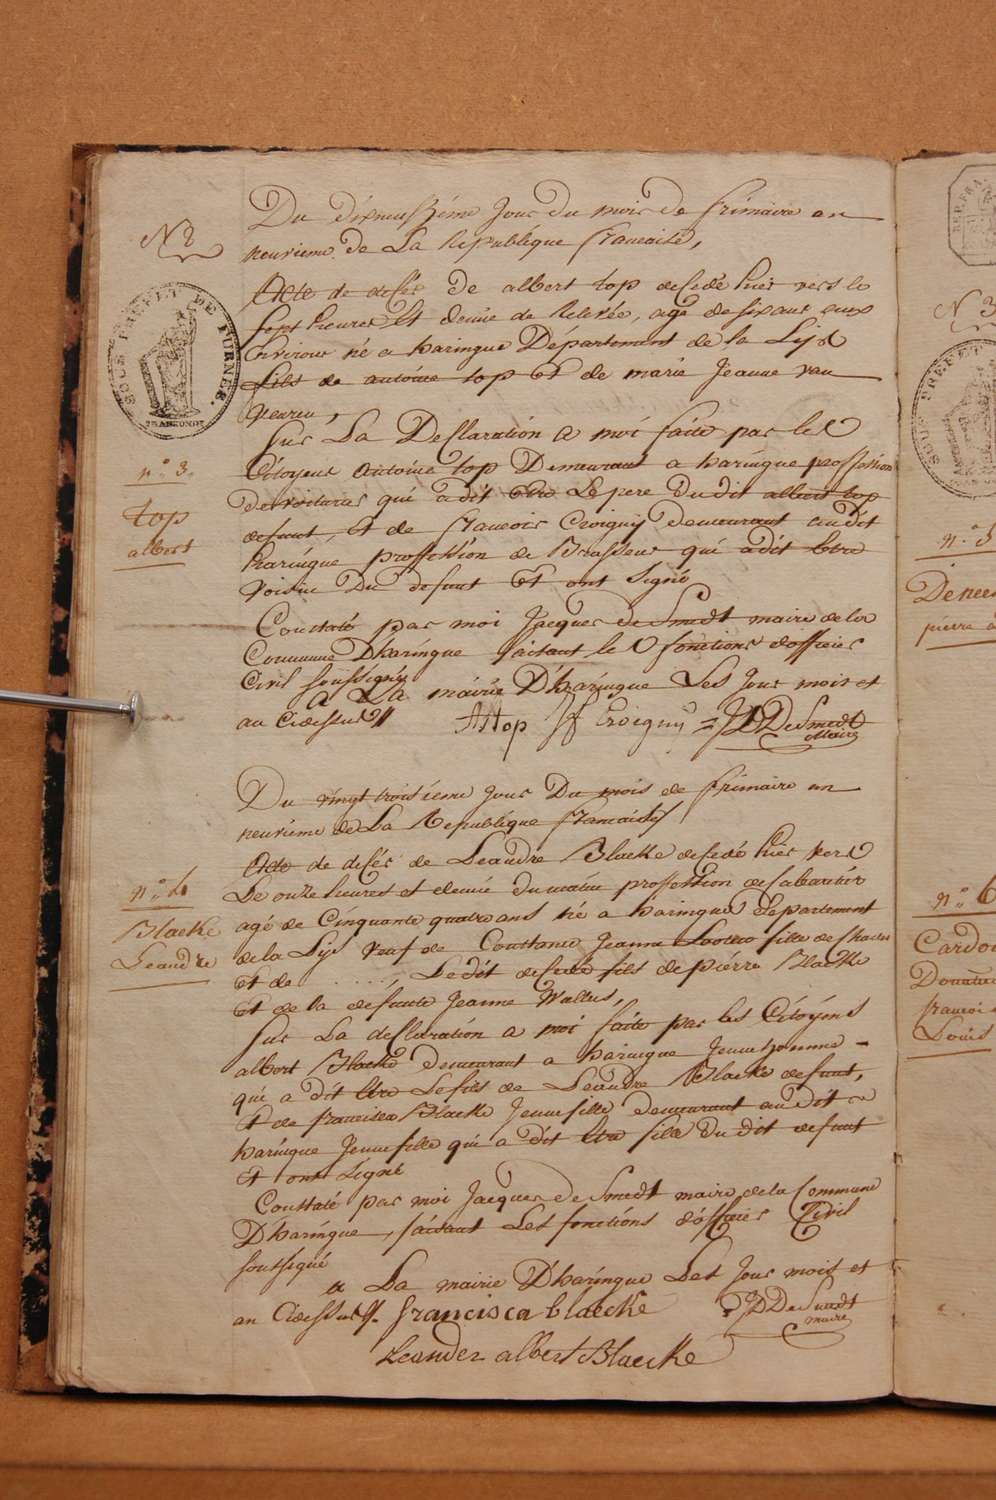 N 2
SOUS PREFET DE FURNES.
Du dixneufhiéme Jour du mois de frimaire an
neuvieme de La Republique francaise,
Acte de desés de albert top desedé hier vers le
sept heures et demie de Relevée, agé de sixant ans
Environs né a haringue Département de la Lijs
fils de antoine top et de marie Jeanne van
n.o 3.
top
albert
Sur La Desflaration a moi faite par les
Citoyens antoine top Demeurant a haringue proffession
de voitures qui a dit etre Le pere Du dit albert top
defunt, et de francois Croigny demeurant audit
haringue proffession de Brasseur qui a dit etre
voisin Du defunt et ont Signé
Constaté par moi Jacques de Smedt maire de la
Commune D'haringue faisant le fonctions d'officier
Civil soussigné
a La mairie D'haringue Les Jour mois et
an Cidessus
Attop JF Croigny = JD DeSmedt
Maire
Du vingt troisieme Jour Du mois de frimaire an
neuvieme de La Republique francaise
n.o 4
Blaeke
Leandre
Acte de desés de Leandre Blaeke desedé hier vers
Le onze heures et demie du matin proffession de Cabaretier
agé de Cinquante quatre ans né a haringue departement
de la Lijs veuf de Constance Jeanne fille de Charles
et de ....., Ledit desedé fils de piérre Blaeke
et de la defunte Jeanne Wallus,
Sur La desflaration a moi faite par les Citoÿens
albert Blaeke demeurant a haringue Jeune homme
qui a dit etre Le fils de Leandre Blaeke defunt,
Et de francisca Blaeke Jeune fille demeurant audit
haringue Jeune fille qui a dit etre fille Du dit defunt
et ont Signé
Constaté par moi Jacques de Smedt maire de la Commune
D'haringue, faisant Les fonctions d'officier Civil
soussigné
a La mairie D'haringue Les Jour mois et
an Cidessus. francisca blaecke JD DeSmedt
maire
Leander albert Blaecke
REP. FRA.
N 3
SOUS PREFET
n.o 5
pierre
n.o 6
Donatien
francois
Louis